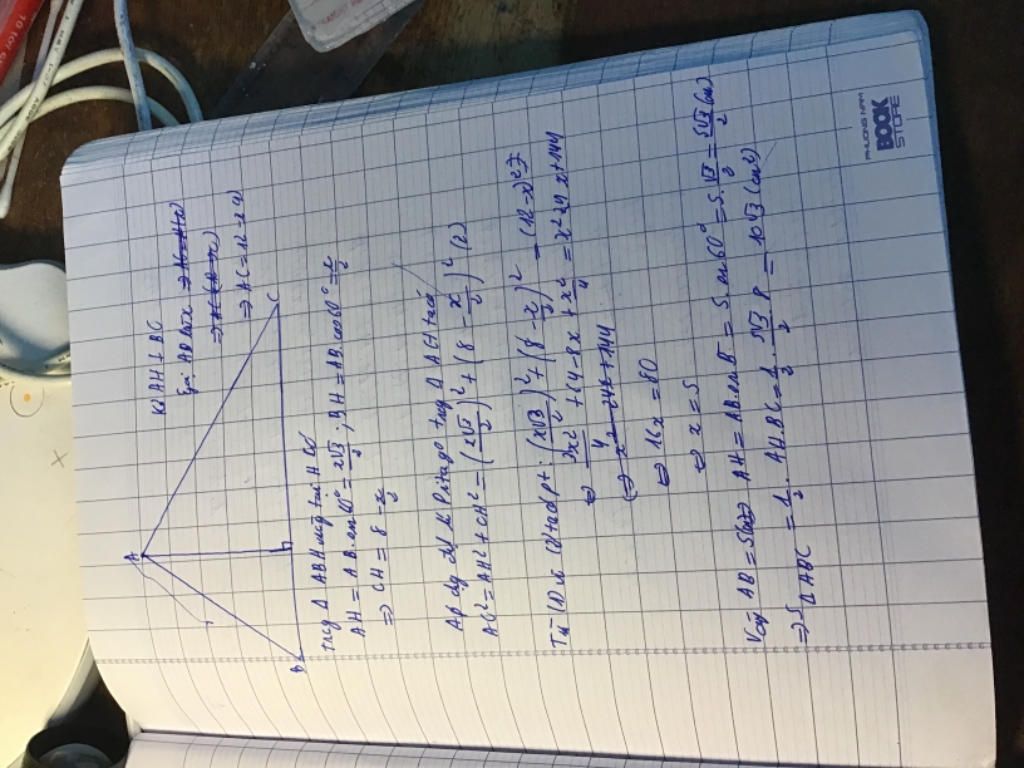 Kẻ AH ⊥ BC
Gọi AB là x
⇒ AC = 12 - x (1)
A
B
C
H
trong Δ ABH vuông tại H có
AH = AB. sin 60° = x√3/2 ; BH = AB. cos 60° = x/2
⇒ CH = 8 - x/2
Áp dụng định lí Pitago trong Δ AHC
AC² = AH² + CH² = (x√3/2)² + (8 - x/2)² (2)
Từ (1) và (2) ta có pt: (x√3/2)² + (8 - x/2)² = (12 - x)²
⇔ 3x²/4 + 64 - 8x + x²/4 = x² - 24x + 144
⇔ 16x = 80
⇔ x = 5
Vậy AB = 5 AH = AB. sin B = 5. sin 60° = 5. √3/2 = 5√3/2 (cm)
⇒ S Δ ABC = 1/2 . AH. BC = 1/2 . 5√3/2 . 8 = 10√3 (cm²)
PHUONG NAM
BOOK
STORE